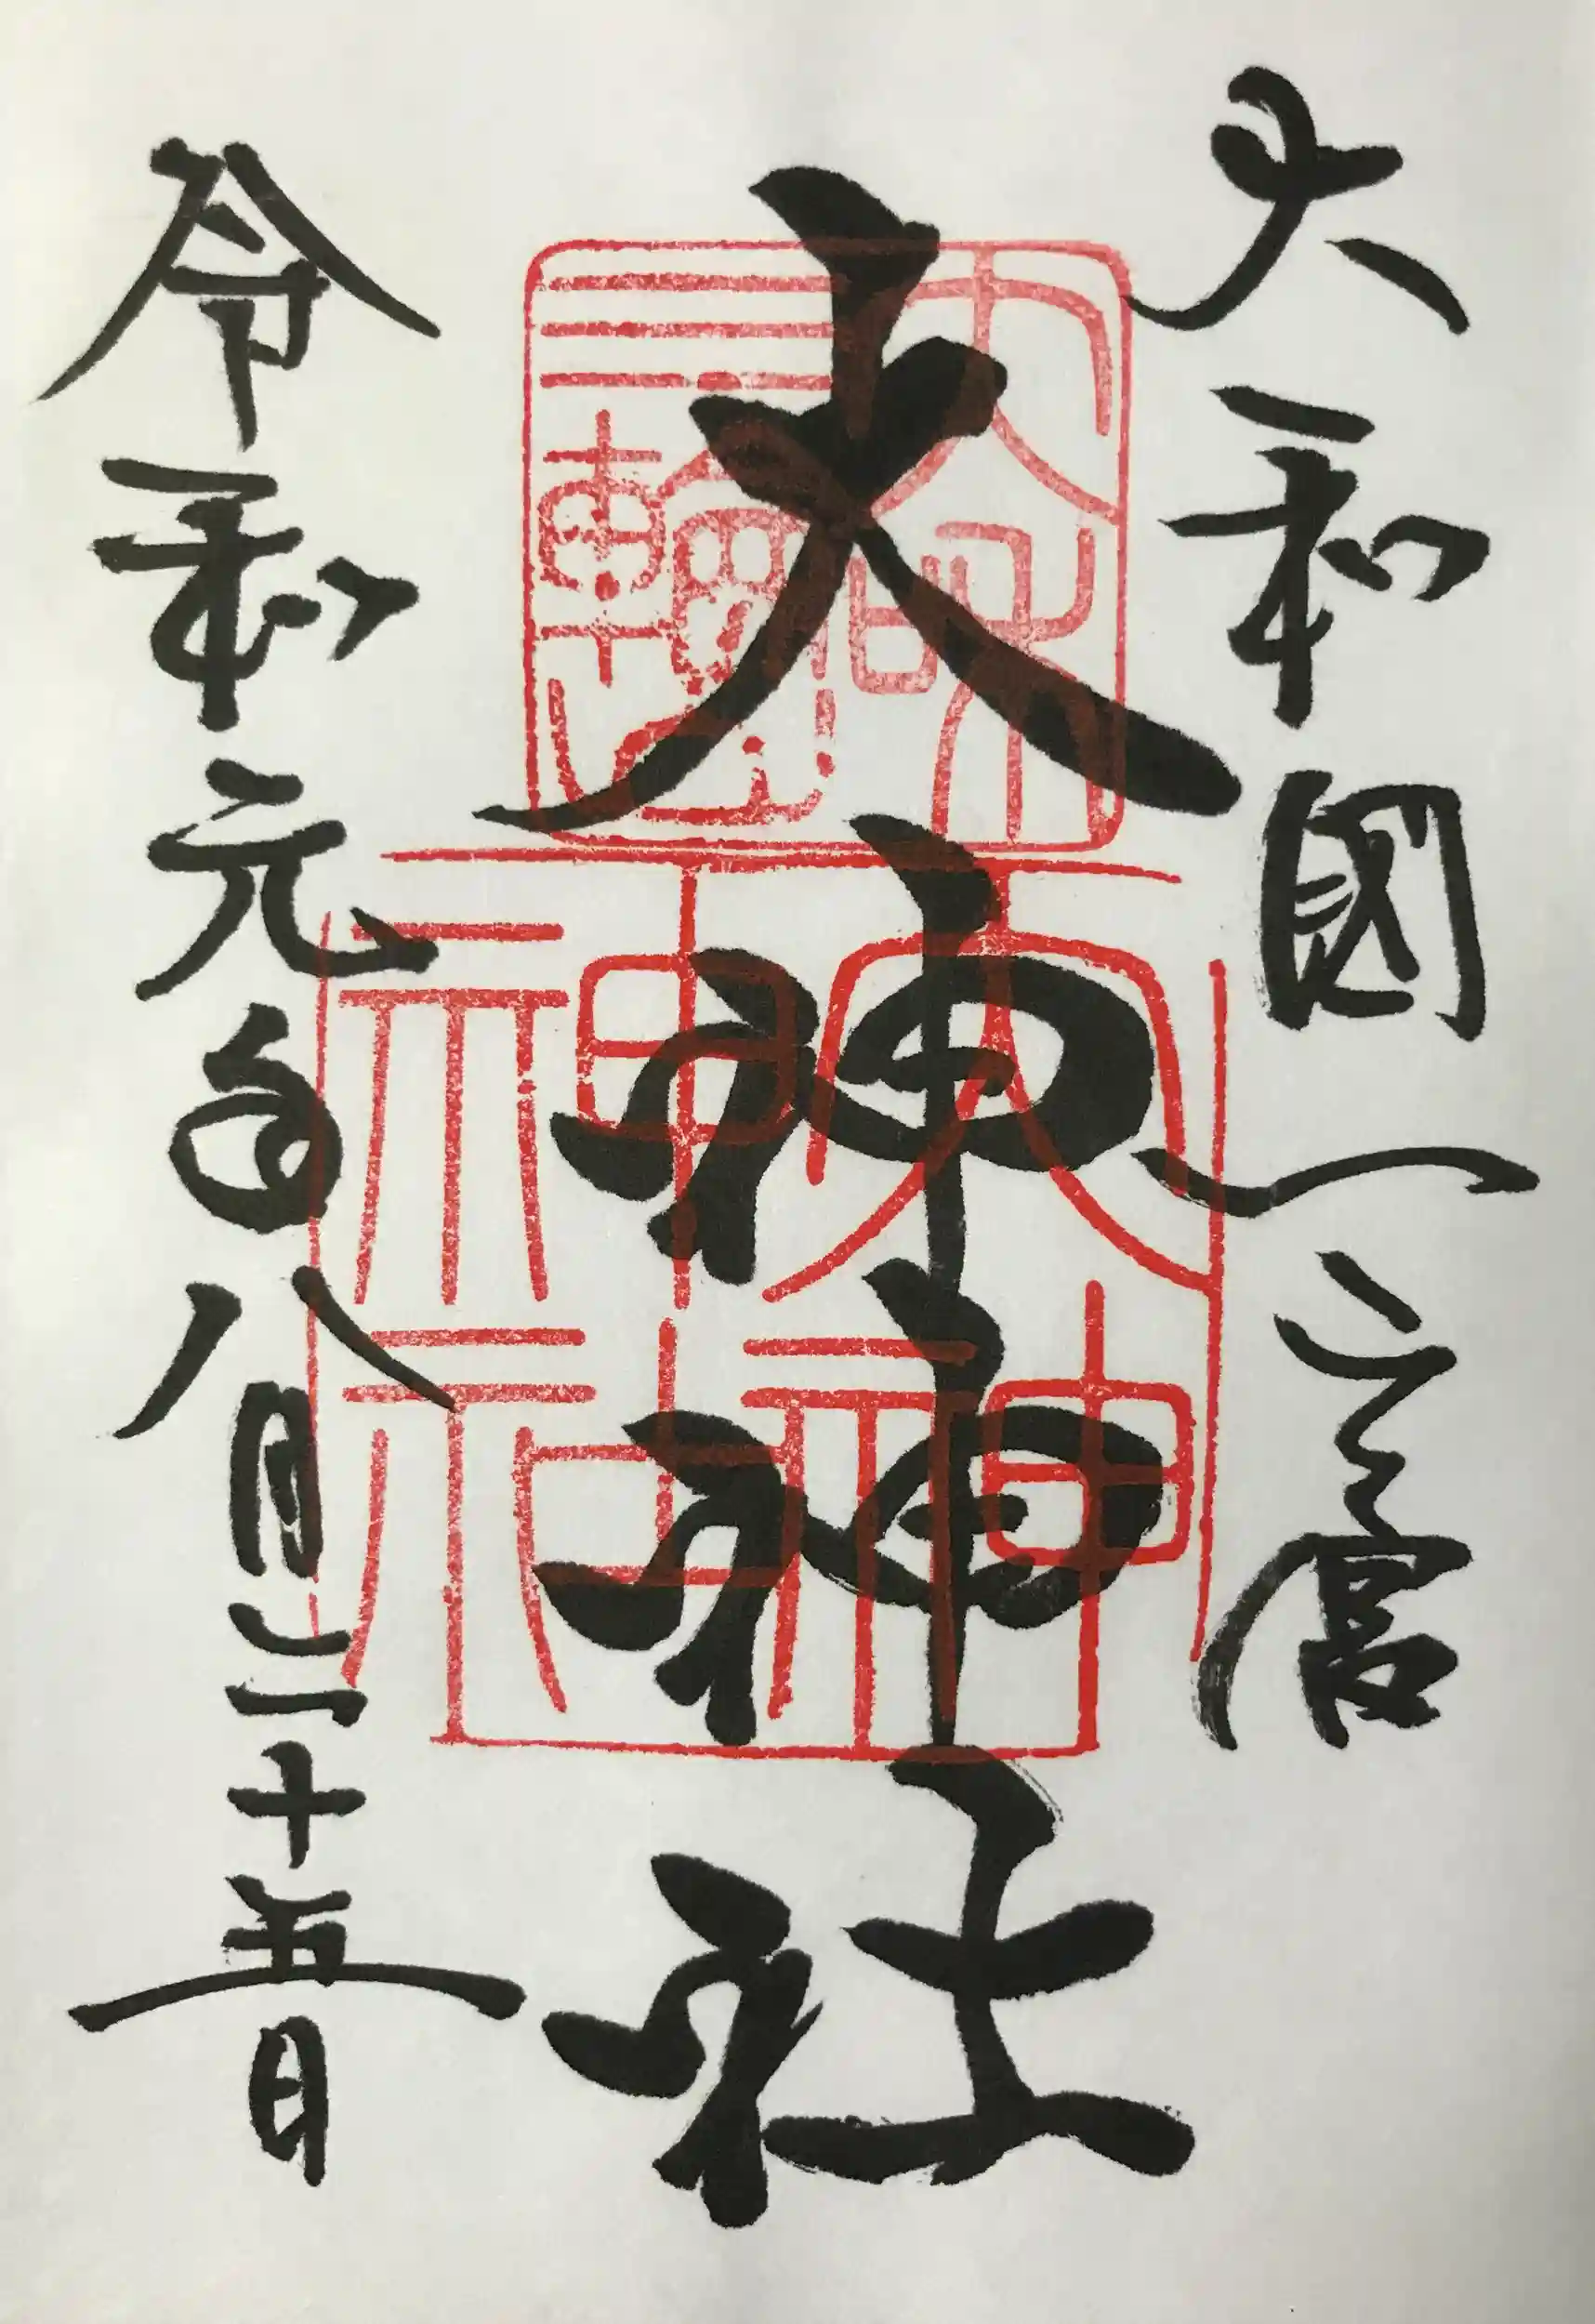 大和國一之宮
大神神社
令和元年八月二十五日
大和
三輪山
大神
神社